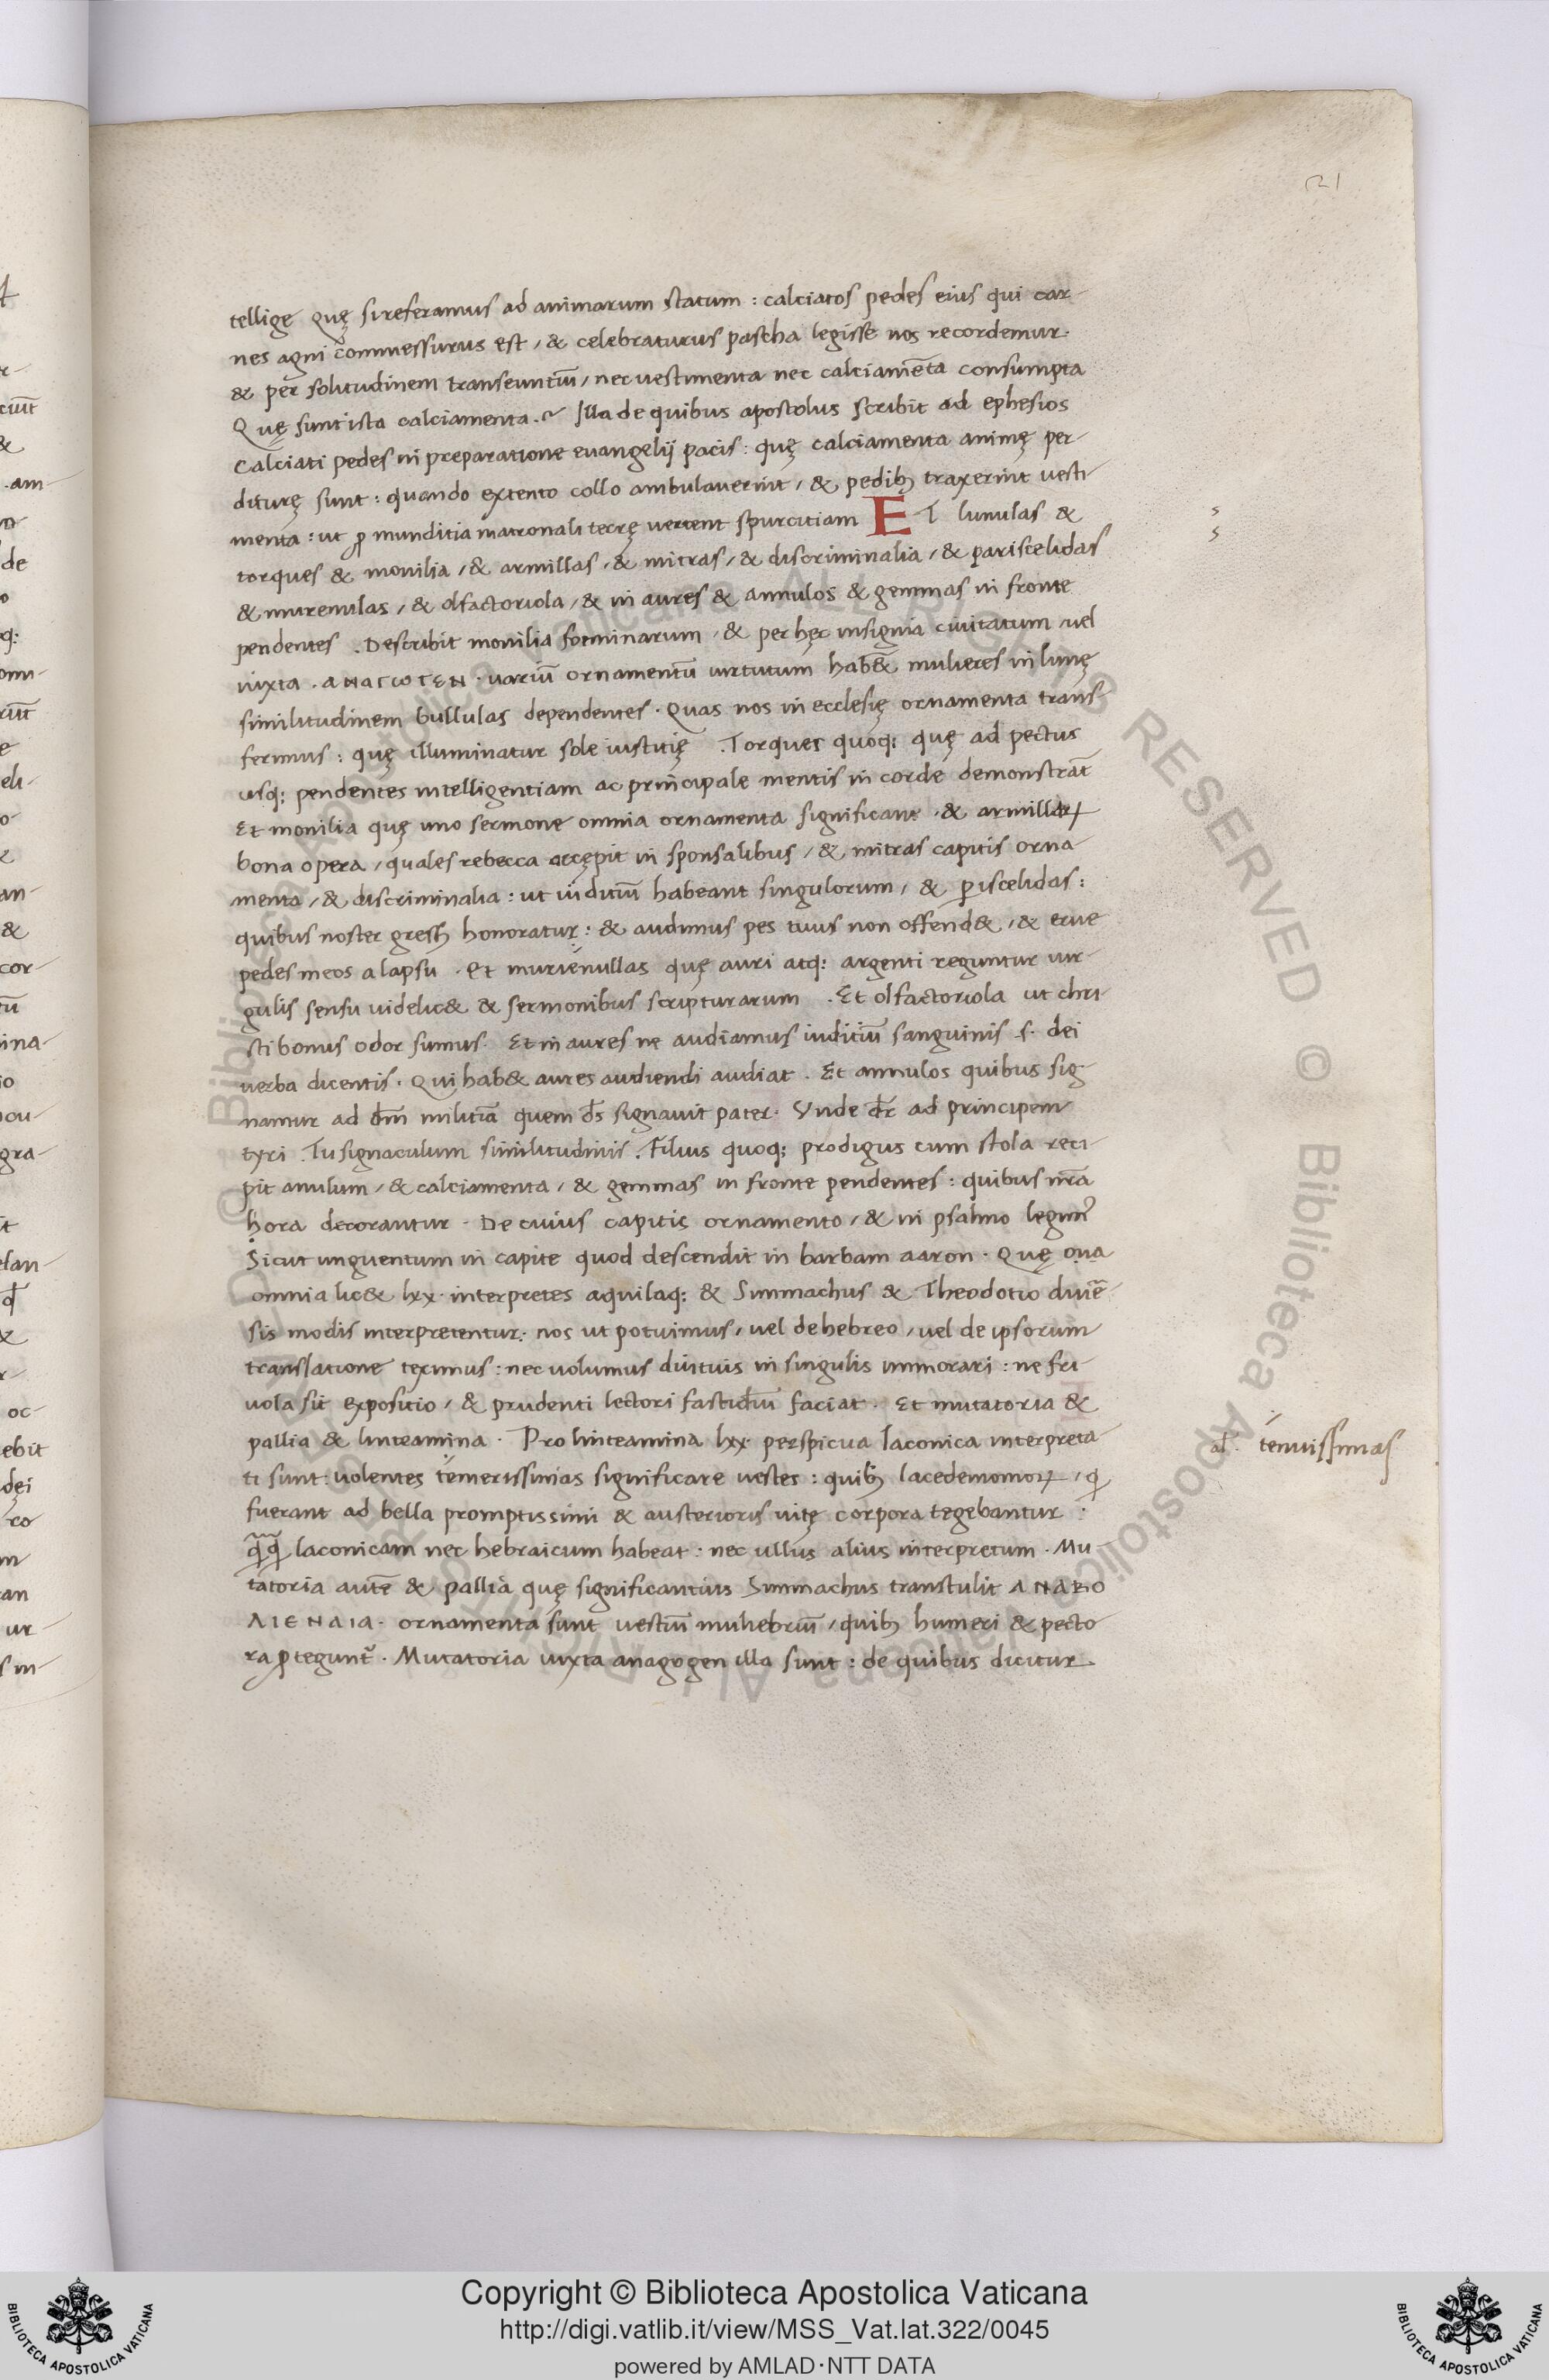 21
tellige quę si referamus ad animarum statum : calciatos pedes eius qui car-
nes agni commessurus est / & celebraturus pascha legisse nos recordemur.
& per solitudinem transeuntiū / nec uestimenta nec calciamēta consumpta
Quę sunt ista calciamenta .~ Illa de quibus apostolus scribit ad ephesios
Calciati pedes in preparatione euangelij pacis : quę calciamenta animę per-
diturę sunt : quando extento collo ambulauerint / & pedibꝫ traxerint uesti-
menta : ut ꝓ munditia matronali terrę uertent spurcitiam ET lunulas &
torques & monilia / & armillas / & mitras / & discriminalia / & pariscelidas
& murenulas / & olfactoriola / & in aures & annulos & gemmas in fronte
pendentes . Describit monilia foeminarum / & per hęc insignia ciuitatum / uel
iuxta . ΑΝΑΓΩΓΕΝ . uariū ornamentū uirtutum hab& mulieres in lunę
similitudinem bullulas dependentes . Quas nos in ecclesię ornamenta trans-
ferimus : quę illuminatur sole iustitię . Torques quoq; quę ad pectus
usq; pendentes intelligentiam ac principale mentis in corde demonstrāt
Et monilia quę uno sermone omnia ornamenta significant . & armillaꝝ
bona opera / quales rebecca accępit in sponsalibus / & mitras capitis orna-
menta / & discriminalia : ut iuditiū habeant singulorum / & ꝑiscelidas :
quibus noster gressꝫ honoratur : & audimus pes tuus non offend& / & erue
pedes meos a lapsu . Et murenullas quę auri atq; argenti reguntur uir-
gulis sensu uidelic& & sermonibus scripturarum . Et olfactoriola ut chri-
sti bonus odor sumus . Et in aures ne audiamus iuditiū sanguinis .s. dei
uerba dicentis . Qui hab& aures audiendi audiat . Et annulos quibus sig-
namur ad dm̄ militiā quem d̄s signauit pater . Vnde dr̄ ad principem
tyri . Tu signaculum similitudinis . Filius quoq; prodigus cum stola reci-
pit anulum / & calciamenta / & gemmas in fronte pendentes : quibus nr̄a
hora decorantur . De cuius capitis ornamento / & in psalmo legimꝰ
Sicut unguentum in capite quod descendit in barbam aaron . Quę oua
omnia lic& lxx . interpretes aquilaq; & Simmachus & Theodotio diuē-
sis modis interpretentur : nos ut potuimus / uel de hebreo / uel de ipsorum
translatione teximus : nec uolumus diutuis in singulis immorari : ne fri-
uola sit expositio / & prudenti lectori fastidiū faciat . Et mutatoria &
pallia & linteamina . Pro linteamina lxx . perspicua laconica interpreta-
ti sunt : uolentes temerissimas significare uestes : quibꝫ lacedemonioꝝ / q
fuerant ad bella promptissimi & austerioris uitę corpora tegebantur :
q̄q̄ laconicam nec hebraicum habeat : nec ullus alius interpretum . Mu-
tatoria autē & pallia quę significantius Simmachus transtulit ΑΝΑΒΟ
ΛΙΕΝΑΙΑ . ornamenta sunt uestiū muliebriū / quibꝫ humeri & pecto
ra ꝓtegunt̃ . Mutatoria iuxta anagogen illa sunt : de quibus dicitur
s
s
al̄. tenuissimas
Copyright © Biblioteca Apostolica Vaticana
http://digi.vatlib.it/view/MSS_Vat.lat.322/0045
powered by AMLAD·NTT DATA
BIBLIOTECA APOSTOLICA VATICANA
BIBLIOTECA APOSTOLICA VATICANA